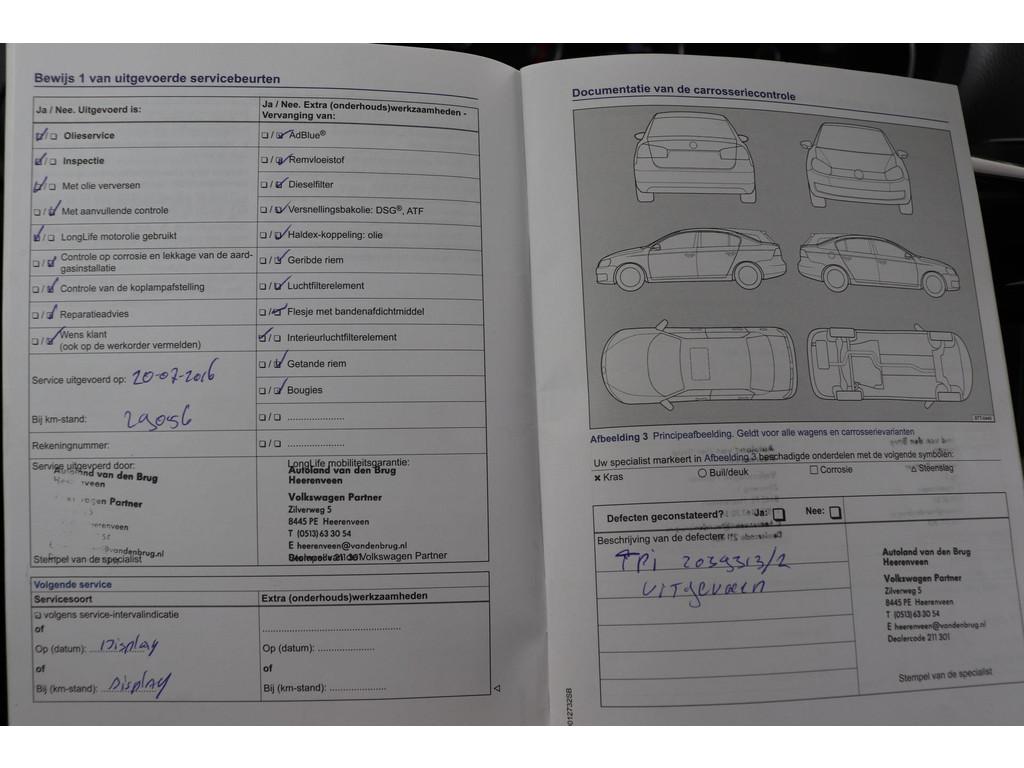 Bewijs 1 van uitgevoerde servicebeurten
Ja / Nee. Uitgevoerd is:
Olieservice
Inspectie
Met olie verversen
Met aanvullende controle
LongLife motorolie gebruikt
Controle op corrosie en lekkage van de aard-
gasinstallatie
Controle van de koplampafstelling
Reparatieadvies
Wens klant
(ook op de werkorder vermelden)
Service uitgevoerd op: 20-07-2016
Bij km-stand: 29056
Rekeningnummer:
Service uitgevoerd door:
van den Brug
Partner
@vandenbrug.nl
Stempel van de specialist
Ja / Nee. Extra (onderhouds)werkzaamheden -
Vervanging van:
AdBlue®
Remvloeistof
Dieselfilter
Versnellingsbakolie: DSG®, ATF
Haldex-koppeling: olie
Geribde riem
Luchtfilterelement
Flesje met bandenafdichtmiddel
Interieurluchtfilterelement
Getande riem
Bougies
LongLife mobiliteitsgarantie:
Autoland van den Brug
Heerenveen
Volkswagen Partner
Zilverweg 5
8445 PE Heerenveen
T (0513) 63 30 54
E heerenveen@vandenbrug.nl
Dealercode 211 301
Volkswagen Partner
Volgende service
Servicesoort
volgens service-intervalindicatie
of
Op (datum): Display
of
Bij (km-stand): Display
Extra (onderhouds)werkzaamheden
Op (datum):
of
Bij (km-stand):
Documentatie van de carrosseriecontrole
Afbeelding 3 Principeafbeelding. Geldt voor alle wagens en carrosserievarianten
Uw specialist markeert in Afbeelding 3 beschadigde onderdelen met de volgende symbolen:
Kras
Buil/deuk
Corrosie
Steenslag
Defecten geconstateerd? Ja: Nee:
Beschrijving van de defecten:
TPI 2039313/2
Autoland van den Brug
Heerenveen
Volkswagen Partner
Zilverweg 5
8445 PE Heerenveen
T (0513) 63 30 54
E heerenveen@vandenbrug.nl
Dealercode 211 301
Stempel van de specialist
012732SB